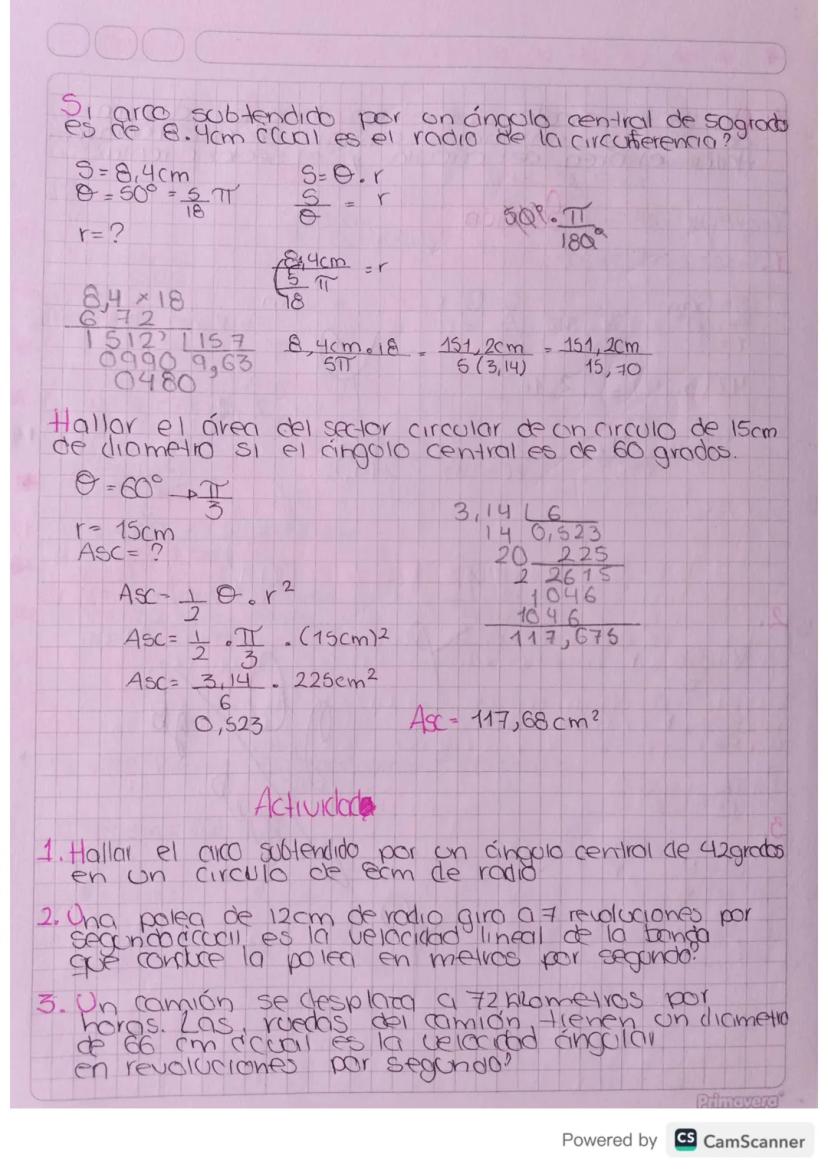 Si arco subtendido por un ángulo central de 50grados
es de 8.4cm ¿cual es el radio de la circuferencia?
S=8,4cm
S=θ.r
θ=50° = 5/18 π
S/θ = r
50°. π/180°
r=?
8,4cm / (5/18 π) = r
8,4 x 18
672
1512' 157
0990 9,63
0480
8,4cm.18/5π = 151,2cm/5(3,14) = 151,2cm/15,70
Hallar el área del sector circular de un circulo de 15cm
de diametro si el ángulo central es de 60 grados.
θ=60° → π/3
r= 15cm
ASC= ?
3,14 6
14 0,523
20 225
2 2615
1046
1046
117,675
ASC= 1/2 θ.r²
ASC= 1/2 . π/3 . (15cm)²
ASC= 3,14/6 . 225cm²
0,523
Asc= 117,68cm²
Actividad
1. Hallar el arco subtendido por un ángulo central de 42grados
en un circulo de 8cm de radio
2. Una polea de 12cm de radio gira a 7 revoluciones por
segundo ¿cual es la velocidad lineal de la banda
que conduce la polea en metros por segundo?
3. Un camión se desplaza a 72 kilometros por
horas. Las ruedas del camión tienen un diametro
de 66 cm ¿cual es la velocidad ángular
en revoluciones por segundo?
Primavera
Powered by CS CamScanner